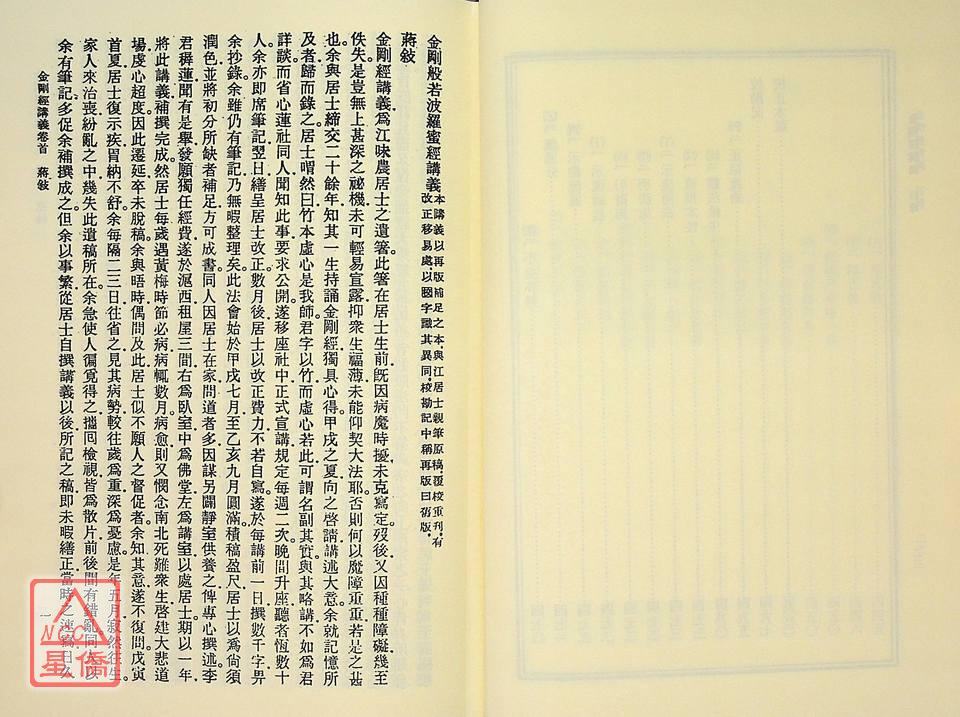 金剛般若波羅蜜經講義
本講義以再版補足之本與江居士親筆原稿覆校重刊有
改正移易處以國字識其異同校勘記中稱再版曰舊版
蔣敍
金剛經講義為江味農居士之遺箸此箸在居士生前旣因病魔時擾未克寫定歿後又因種種障礙幾至
佚失是豈無上甚深之祕機未可輕易宣露抑衆生福薄未能仰契大法耶否則何以魔障重重若是之甚
也余與居士締交二十餘年知其一生持誦金剛經獨具心得甲戌之夏向之啓請講述大意余就記憶所
及者歸而錄之居士喟然曰竹本虛心是我師君字以竹而虛心若此可謂名副其實與其略講不如為君
詳談而省心蓮社同人聞知此事要求公開遂移座社中正式宣講規定每週二次晚間升座聽者恆數十
人余亦即席筆記翌日繕呈居士改正數月後居士以改正費力不若自寫遂於每講前一日撰數千字畀
余抄錄余雖仍有筆記乃無暇整理矣此法會始於甲戌七月至乙亥九月圓滿積稿盈尺居士以為尙須
潤色並將初分所缺者補足方可成書同人因居士在家問道者多因謀另闢靜室供養之俾專心撰述李
君穉蓮聞有是舉發願獨任經費遂於滬西租屋三間右為臥室中為佛堂左為講室以處居士期以一年
將此講義補撰完成然居士每歲遇黃梅時節必病病輒數月病愈則又憫念南北死難衆生啓建大悲道
場虔心超度因此遷延卒未脫稿余與晤時偶問及此居士似不願人之督促者余知其意遂不復問戊寅
首夏居士復示疾胃納不舒余每隔二三日往省之見其病勢較往歲為重深為憂慮是年五月寂然往生
家人來治喪紛亂之中幾失此遺稿所在余急使人徧覓得之攜囘檢視皆為散片前後間有錯亂同人以
余有筆記多促余補撰成之但余以事繁從居士自撰講義以後所記之稿即未暇繕正當時之速寫日久
金剛經講義卷首　蔣敍
一
NCC
星僑